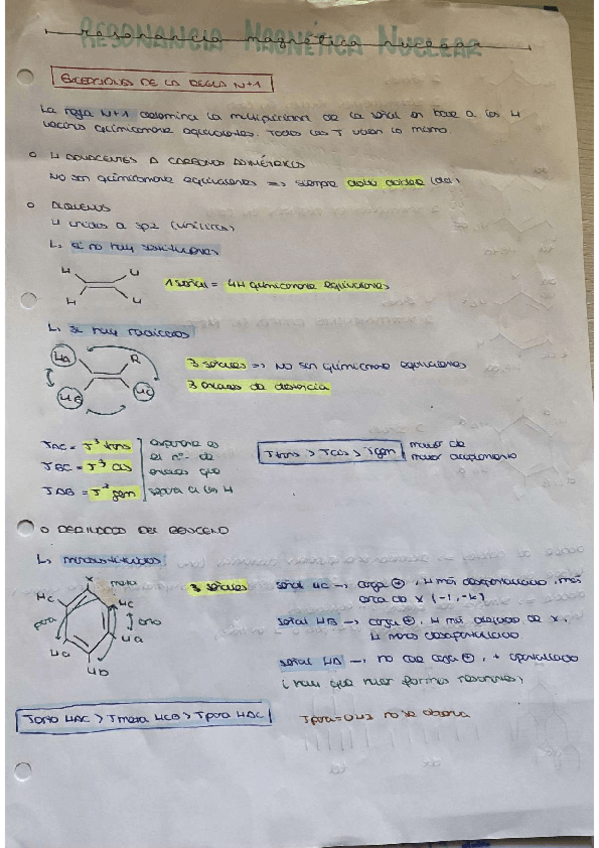 RESONANCIA MAGNÉTICA NUCLEAR
resonancia magnética nuclear
EXCEPCIONES DE LA REGLA N+1
La regla N+1 determina la multiplicidad de la señal en base a los H
vecinos químicamente equivalentes. Todas las J valen lo mismo.
O H ADYACENTES A CARBONOS ASIMÉTRICOS
NO son químicamente equivalentes => siempre doble doblete (dd)
O ALQUENOS
H unidos a sp2 (vinílicos)
L, si no hay sustituyentes
H H
H H
1 señal = 4H químicamente equivalentes
L, si hay radicales
HA R
HB HC
3 señales => NO son químicamente equivalentes
3 enlaces de distancia
JAC = J³ trans
JBC = J³ cis
JAB = J² gem
exponente es
el nº de
enlaces que
separa a los H
Jtrans > Jcis > Jgem
mayor J
mayor acoplamiento
O DERIVADOS DEL BENCENO
L, monosustituidos
x meta
HC HC
para orto
HA HA
HB
3 señales
señal HC →, carga ⊕, H más desapantallado, más
cerca de x (-I, -K)
señal HB →, carga ⊕, H más alejado de x,
H menos desapantallado
señal HA →, no cae carga ⊕, + apantallado
(hay que hacer formas resonantes)
Jorto HAC > Jmeta HCB > Jpara HAC
Jpara = 0 Hz no se observa